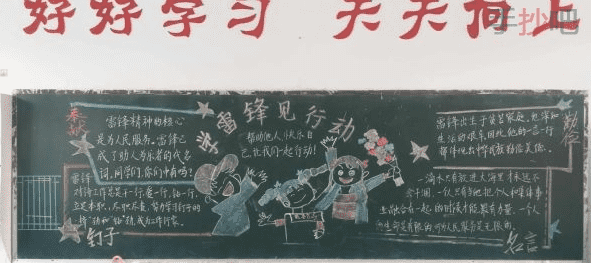 好好学习 天天向上
手抄吧
学雷锋见行动
奉献
雷锋精神的核心
是为人民服务。雷锋已
成了助人为乐的代名
词。同学们,你们冲有吗?
帮助他人 快乐自
己,让我们一起行动!
雷锋出生于贫苦家庭,也深知
生活的艰辛,因此他的一言一行
勤俭
雷锋
对待工作总是干一行,爱一行,钻一行,
立足本职、尽职尽责,努力学习钉子的
钉子
一滴水只有放进大海里才永远不
会干涸,一个人只有当他把个人和集体事
业融合在一起的时候才能最有力量。一个人
的生命是有限的,可为人民服务是无限的。
名言